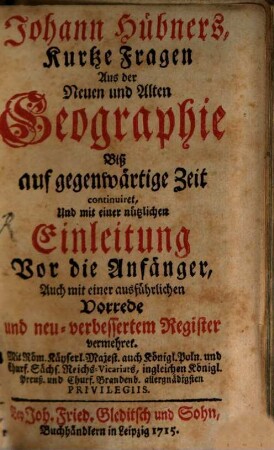 Johann Hübners,
Kurtze Fragen
Aus der
Neuen und Alten
Geographie
Biß
auf gegenwärtige Zeit
continuiret,
Und mit einer nützlichen
Einleitung
Vor die Anfänger,
Auch mit einer ausführlichen
Vorrede
und neu-verbessertem Register
vermehret.
Mit Röm. Käyserl. Majest. auch Königl. Poln. und
Churf. Sächs. Reichs-Vicariats, ingleichen Königl.
Preuß. und Churf. Brandenb. allergnädigsten
PRIVILEGIIS.
Bey Joh. Fried. Gleditsch und Sohn,
Buchhändlern in Leipzig 1715.